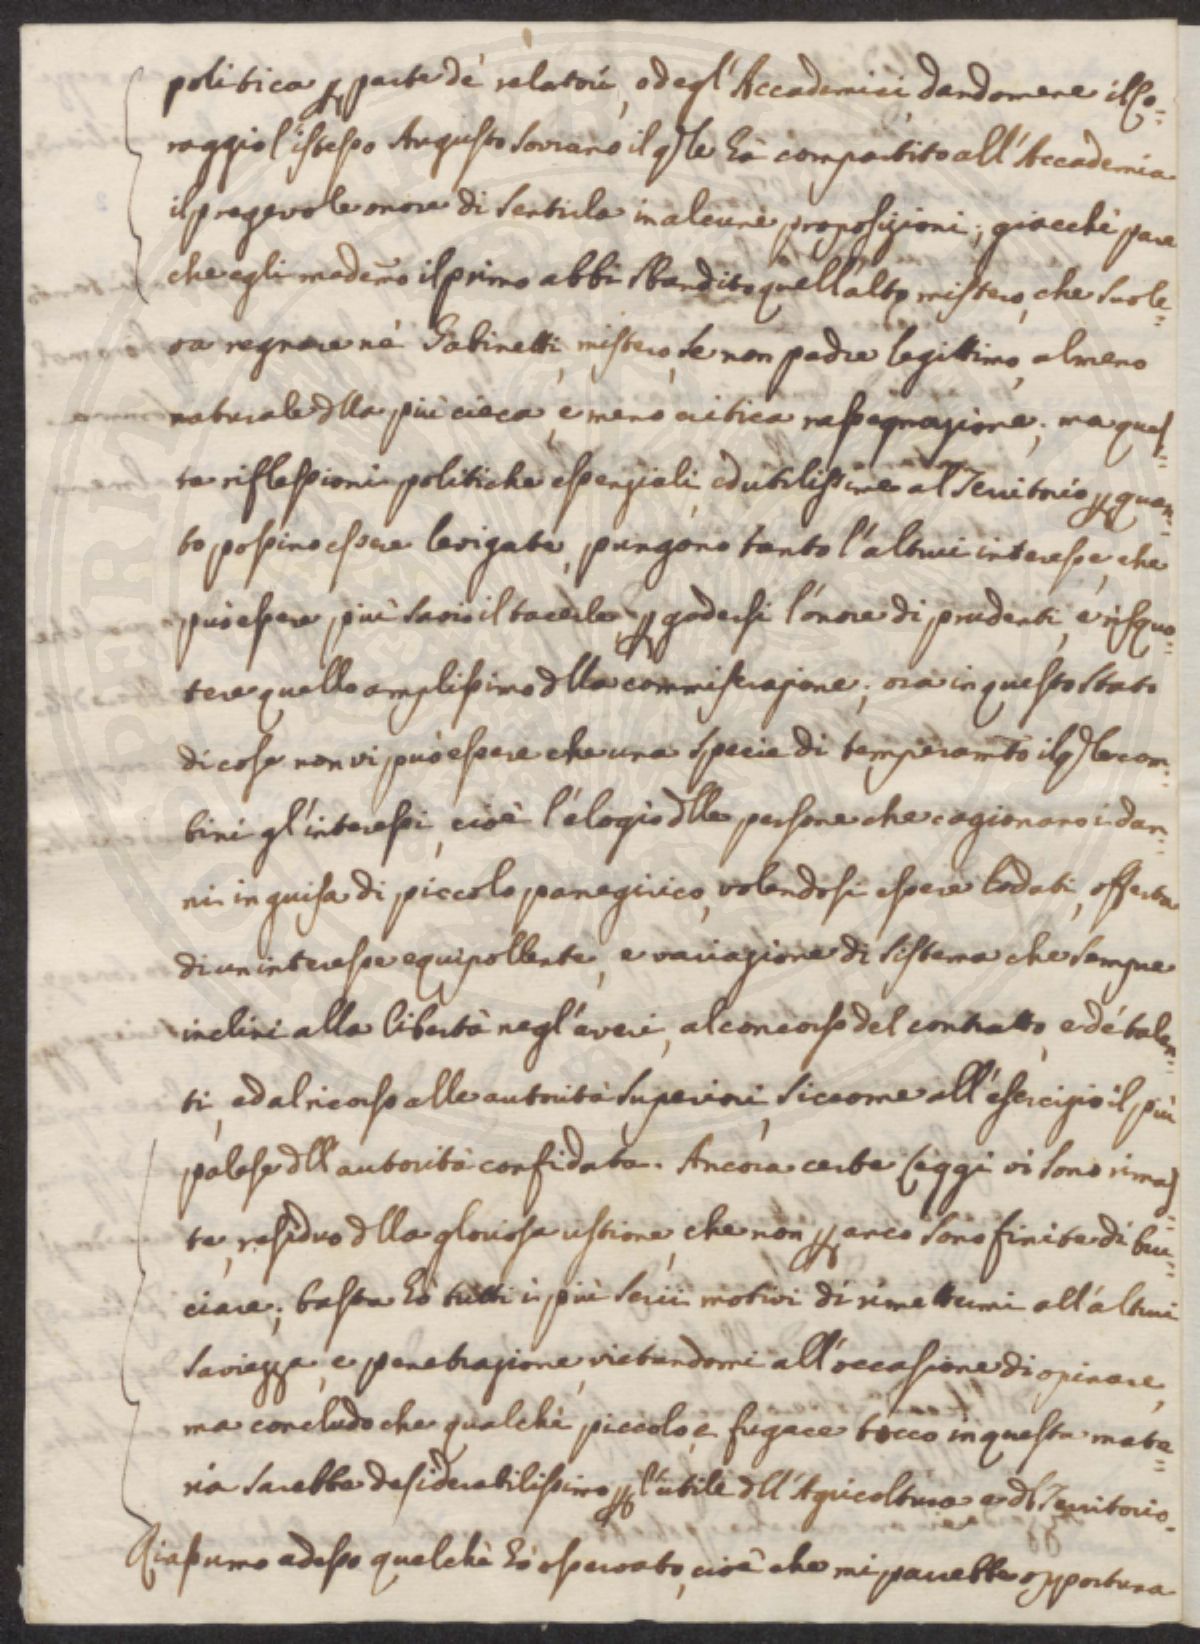 politica p parte de' relatori, o degl'Accademici, dandomene il co=
raggio l'istesso Augusto Sovrano il qle hà compartito all'Accademia
il pregevole onore di sentirla in alcune proposizioni; giacchè pare
che egli medemo il primo abbi sbandito quell'alto mistero, che suole=
va regnare nè Gabinetti, mistero, se non padre legittimo, almeno
naturale dlla più cieca, e meno critica rassegnazione; ma ques=
te riflessioni politiche essenziali, ed utilissime al Territorio p quan=
to possino essere levigate, pungono tanto l'altrui interesse, che
può essere più savio il tacerle, p godersi l'onore di prudenti, e risquo=
tere quello amplissimo dlla commiserazione; ora in questo stato
di cose non vi può essere che una specie di temperamto il qle com=
bini gl'interessi, cioè l'elogio dlle persone che cagionano i dan=
ni in guisa di piccolo panegirico, volendosi essere lodati, offerta
di un interesse equipollente, e variazione di sistema che sempre
inclini alla libertà negl'averi, al concorso del contratto, e dè talen=
ti, ed al ricorso alle autorità superiori, siccome all'esercizio il più
palese dll'autorità confidata. Ancora certe leggi vi sono rimas=
te, residuo dlla gloriosa ustione, che non p anco sono finite di bru=
ciare; basta hò tutti i più serii motivi di rimettermi all'altrui
saviezza, e penetrazione, vietandomi all'occasione di opinare,
ma concludo che qualchè piccolo, e fugace tocco in questa mate=
ria sarebbe desiderabilissimo p l'utile dll'Agricoltura e dl Territorio.
Riassumo adesso quelchè hò osservato, cioè che mi parrebbe opportuna